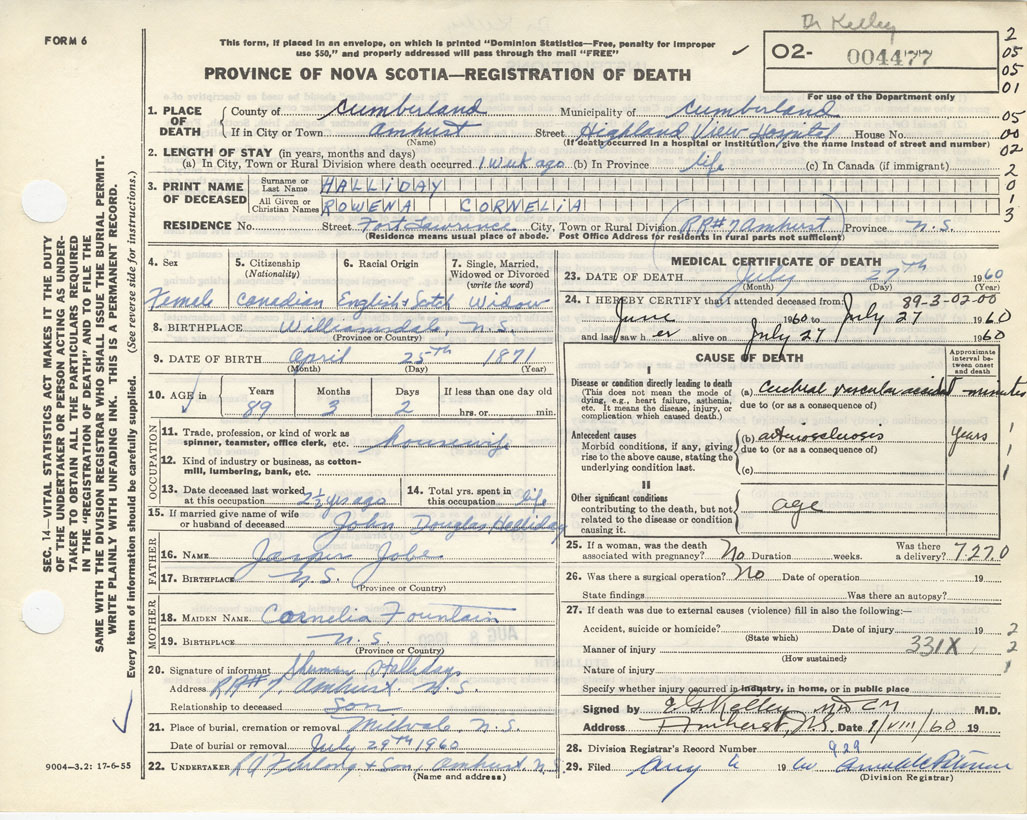 Dr Kelley
FORM 6
This form, if placed in an envelope, on which is printed "Dominion Statistics—Free, penalty for improper
use $50," and properly addressed will pass through the mail "FREE"
02- 004477
For use of the Department only
2
05
05
01
05
00
02
2
0
1
3
PROVINCE OF NOVA SCOTIA—REGISTRATION OF DEATH
SEC. 14—VITAL STATISTICS ACT MAKES IT THE DUTY
OF THE UNDERTAKER OR PERSON ACTING AS UNDER-
TAKER TO OBTAIN ALL THE PARTICULARS REQUIRED
IN THE "REGISTRATION OF DEATH" AND TO FILE THE
SAME WITH THE DIVISION REGISTRAR WHO SHALL ISSUE THE BURIAL PERMIT.
WRITE PLAINLY WITH UNFADING INK. THIS IS A PERMANENT RECORD.
Every item of information should be carefully supplied. (See reverse side for instructions.)
1. PLACE OF DEATH County of Cumberland Municipality of Cumberland
If in City or Town Amhurst Street Highland View Hospital House No.
(Name) (If death occurred in a hospital or institution, give the name instead of street and number)
2. LENGTH OF STAY (in years, months and days)
(a) In City, Town or Rural Division where death occurred. 1 week ago (b) In Province life (c) In Canada (if immigrant)
3. PRINT NAME OF DECEASED Surname or Last Name HALLIDAY
All Given or Christian Names ROWENA CORNELIA
RESIDENCE No. Street Fort Lawrence City, Town or Rural Division RR#7 Amhurst Province N.S.
(Residence means usual place of abode. Post Office Address for residents in rural parts not sufficient)
4. Sex Female
5. Citizenship (Nationality) Canadian
6. Racial Origin English & Scotch
7. Single, Married, Widowed or Divorced (write the word) Widow
8. BIRTHPLACE Williamsdale, N.S.
(Province or Country)
9. DATE OF BIRTH April 25th 1871
(Month) (Day) (Year)
10. AGE in Years Months Days If less than one day old
89 3 2 hrs. or min.
OCCUPATION
11. Trade, profession, or kind of work as spinner, teamster, office clerk, etc. housewife
12. Kind of industry or business, as cotton-mill, lumbering, bank, etc.
13. Date deceased last worked at this occupation 2½ yrs ago
14. Total yrs. spent in this occupation life
15. If married give name of wife or husband of deceased John Douglas Halliday
FATHER
16. NAME
17. BIRTHPLACE N.S.
(Province or Country)
MOTHER
18. MAIDEN NAME. Cornelia Fountain
19. BIRTHPLACE N.S.
(Province or Country)
20. Signature of informant Halliday
Address RR#7, Amhurst. N.S.
Relationship to deceased Son
21. Place of burial, cremation or removal Millvale, N.S.
Date of burial or removal July 29th 1960
22. UNDERTAKER Furlong & Son, Amhurst, N.S.
(Name and address)
9004—3.2: 17-6-55
MEDICAL CERTIFICATE OF DEATH
23. DATE OF DEATH July 27th 1960
(Month) (Day) (Year)
24. I HEREBY CERTIFY that I attended deceased from 89-3-02-00
June 1960 to July 27 1960
and last saw h er alive on July 27 1960
CAUSE OF DEATH
Approximate interval between onset and death
I
Disease or condition directly leading to death
(This does not mean the mode of dying, e.g., heart failure, asthenia, etc. It means the disease, injury, or complication which caused death.)
(a) Cerebral vascular accident minutes
due to (or as a consequence of)
Antecedent causes
Morbid conditions, if any, giving rise to the above cause, stating the underlying condition last.
(b) arteriosclerosis years
due to (or as a consequence of)
(c)
1
1
1
II
Other significant conditions
contributing to the death, but not related to the disease or condition causing it.
age
25. If a woman, was the death associated with pregnancy? No Duration weeks. Was there a delivery? 7.27.0
26. Was there a surgical operation? No Date of operation 19
State findings Was there an autopsy?
27. If death was due to external causes (violence) fill in also the following:—
Accident, suicide or homicide? Date of injury 19 2
(State which)
Manner of injury 331X 2
(How sustained)
Nature of injury 1
Specify whether injury occurred in industry, in home, or in public place
Signed by Kelley MD CM M.D.
Address Amherst, N.S. Date 1/VIII/60 19
28. Division Registrar's Record Number 929
29. Filed Aug 6 1960
(Division Registrar)